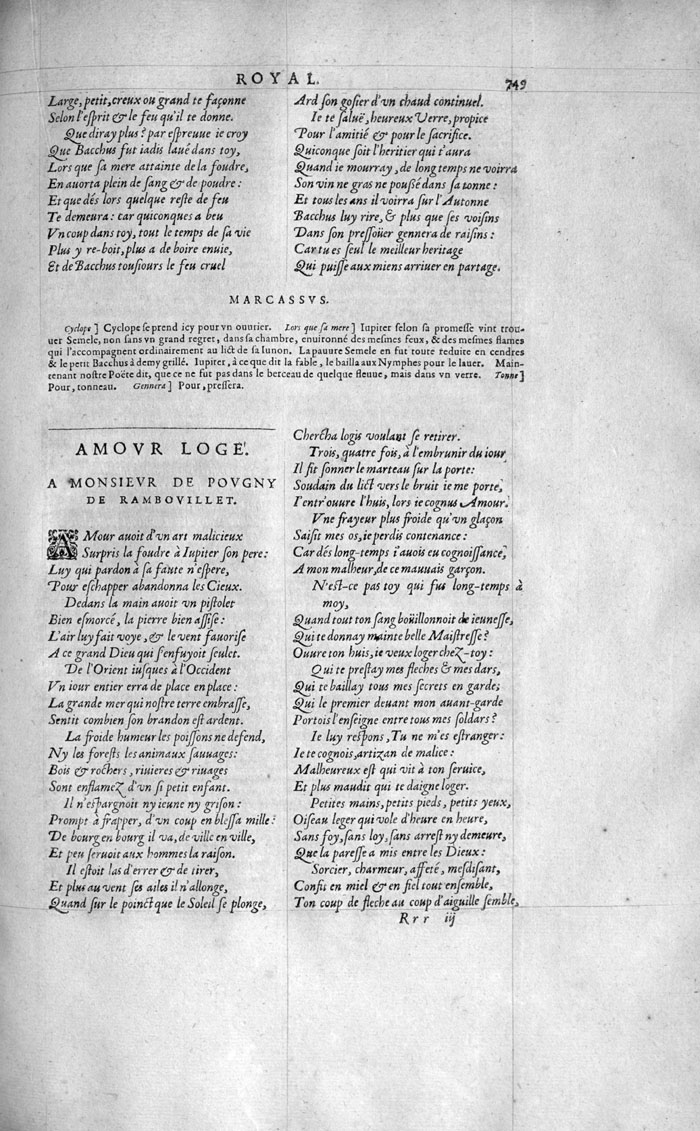 ROYAL.
749
Large, petit, creux ou grand te façonne
Selon l'esprit & le feu qu'il te donne.
Que diray plus? par espreuue ie croy
Que Bacchus fut iadis laué dans toy,
Lors que sa mere attainte de la foudre,
En auorta plein de sang & de poudre:
Et que dés lors quelque reste de feu
Te demeura: car quiconques a beu
Vn coup dans toy, tout le temps de sa vie
Plus y re-boit, plus a de boire enuie,
Et de Bacchus tousiours le feu cruel
Ard son gosier d'vn chaud continuel.
Ie te saluë, heureux Verre, propice
Pour l'amitié & pour le sacrifice.
Quiconque soit l'heritier qui t'aura
Quand ie mourray, de long temps ne voirra
Son vin ne gras ne poussé dans sa tonne:
Et tous les ans il voirra sur l'Autonne
Bacchus luy rire, & plus que ses voisins
Dans son pressoüer gennera de raisins:
Car tu es seul le meilleur heritage
Qui puisse aux miens arriuer en partage.
MARCASSVS.
Cyclope] Cyclope se prend icy pour vn ouurier. Lors que sa mere] Iupiter selon sa promesse vint trou-
uer Semele, non sans vn grand regret, dans sa chambre, enuironé des mesmes feux, & des mesmes flames
qui l'accompagnent ordinairement au lict de sa Iunon. La pauure Semele en fut toute reduite en cendres
& le petit Bacchus à demy grillé. Iupiter, à ce que dit la fable, le bailla aux Nymphes pour le lauer. Main-
tenant nostre Poëte dit, que ce ne fut pas dans le berceau de quelque fleuue, mais dans vn verre. Tonne]
Pour, tonneau. Gennera] Pour, pressera.
AMOVR LOGÉ.
A MONSIEVR DE POVGNY
DE RAMBOVILLET.
AMour auoit d'vn art malicieux
Surpris la foudre à Iupiter son pere:
Luy qui pardon à sa faute n'espere,
Pour eschapper abandonna les Cieux.
Dedans la main auoit vn pistolet
Bien esmorcé, la pierre bien assise:
L'air luy fait voye, & le vent fauorise
A ce grand Dieu qui s'enfuyoit seulet.
De l'Orient iusques à l'Occident
Vn iour entier erra de place en place:
La grande mer qui nostre terre embrasse,
Sentit combien son brandon est ardent.
La froide humeur les poissons ne defend,
Ny les forests les animaux sauuages:
Bois & rochers, riuieres & riuages
Sont enflamez d'vn si petit enfant.
Il n'espargnoit ny ieune ny grison:
Prompt à frapper, d'vn coup en blessa mille:
De bourg en bourg il va, de ville en ville,
Et peu seruoit aux hommes la raison.
Il estoit las d'errer & de tirer,
Et plus au vent ses ailes il n'allonge,
Quand sur le poinct que le Soleil se plonge,
Chercha logis voulant se retirer.
Trois, quatre fois, à l'embrunir du iour
Il fit sonner le marteau sur la porte:
Soudain du lict vers le bruit ie me porte,
I'entr'ouure l'huis, lors ie cognus Amour.
Vne frayeur plus froide qu'vn glaçon
Saisit mes os, ie perdis contenance:
Car dés long-temps i'auois eu cognoissance,
A mon malheur, de ce mauuais garçon.
N'est-ce pas toy qui fus long-temps à
moy,
Quand tout ton sang boüillonnoit de ieunesse,
Qui te donnay mainte belle Maistresse?
Ouure ton huis, ie veux loger chez-toy:
Qui te prestay mes fleches & mes dars,
Qui te baillay tous mes secrets en garde;
Qui le premier deuant mon auant-garde
Portois l'enseigne entre tous mes soldars?
Ie luy respons, Tu ne m'es estranger:
Ie te cognois, artizan de malice:
Malheureux est qui vit à ton seruice,
Et plus maudit qui te daigne loger.
Petites mains, petits pieds, petits yeux,
Oiseau leger qui vole d'heure en heure,
Sans foy, sans loy, sans arrest ny demeure,
Que la paresse a mis entre les Dieux:
Sorcier, charmeur, affeté, mesdisant,
Confit en miel & en fiel tout ensemble,
Ton coup de fleche au coup d'aiguille semble,
Rrr iij